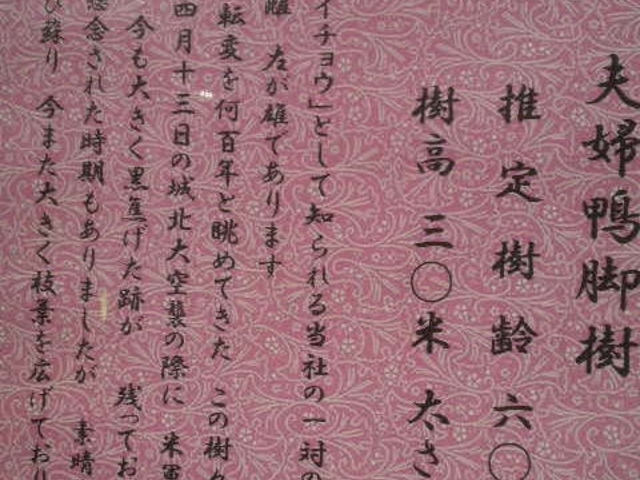 夫婦鴨脚樹
推定樹齢 六〇
樹高 三〇米 太さ
イチョウ」として知られる当社の一対の
雌 左が雄であります
転変を何百年と眺めてきた この樹々
四月十三日の城北大空襲の際に 米軍
今も大きく黒焦げた跡が 残ってお
懸念された時期もありましたが 素晴
び蘇り 今また大きく枝葉を広げており